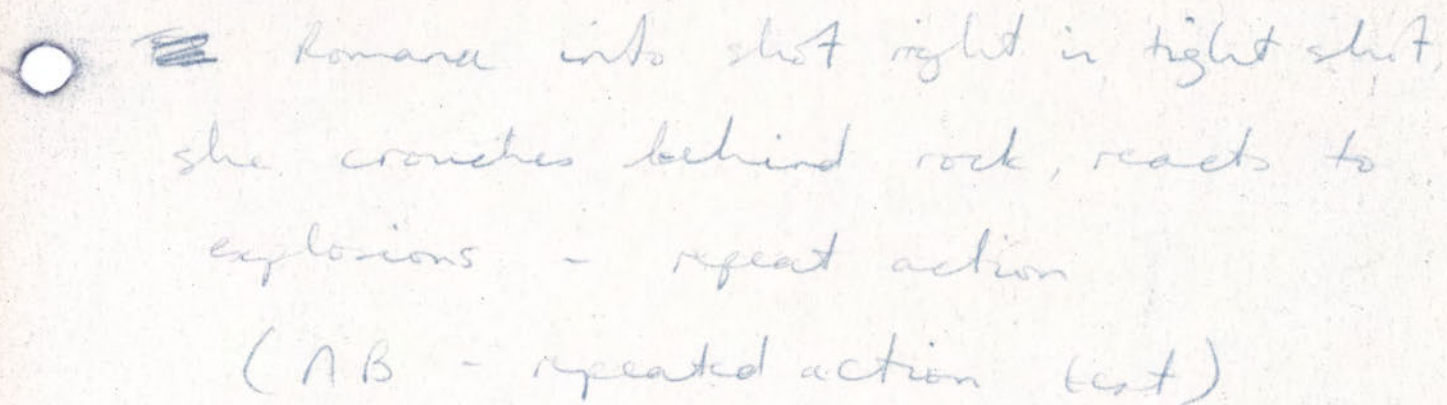 Romana into shot right in tight shot,
she crouches behind rock, reacts to
explosions - repeat action
(NB - repeated action best)